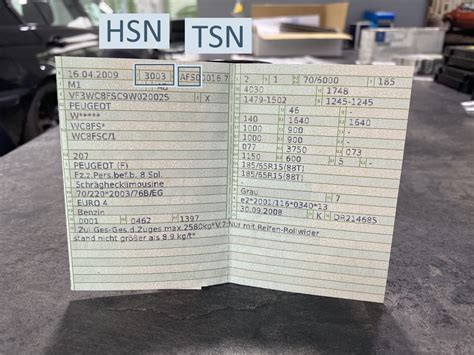 HSN TSN
16.04.2009 3003 AFS00016 7
M1
VF3WC8FSC9W020025 X
PEUGEOT
W*****
WC8FS*
WC8FSC/1
207
PEUGEOT (F)
Fz.z.Pers.bef.b. 8 Spl.
Schräghecklimousine
70/220*2003/76B/EG
EURO 4
Benzin
0001 0462 1397
Zul.Ges-Ges.d.Zuges max.2580kg*V.7:Nur mit Reifen-Rollwider
stand nicht größer als 8,9 kg/t*
2 1 70/6000 185
4030 1748
1479-1502 1245-1245
46 -
140 1640 1640
1000 900 -
1000 900 -
077 3750 073
1150 600 5 -
185/65R15(88T)
185/65R15(88T)
Grau 7
e2*2001/116*0340*13
30.09.2008 K DR214685